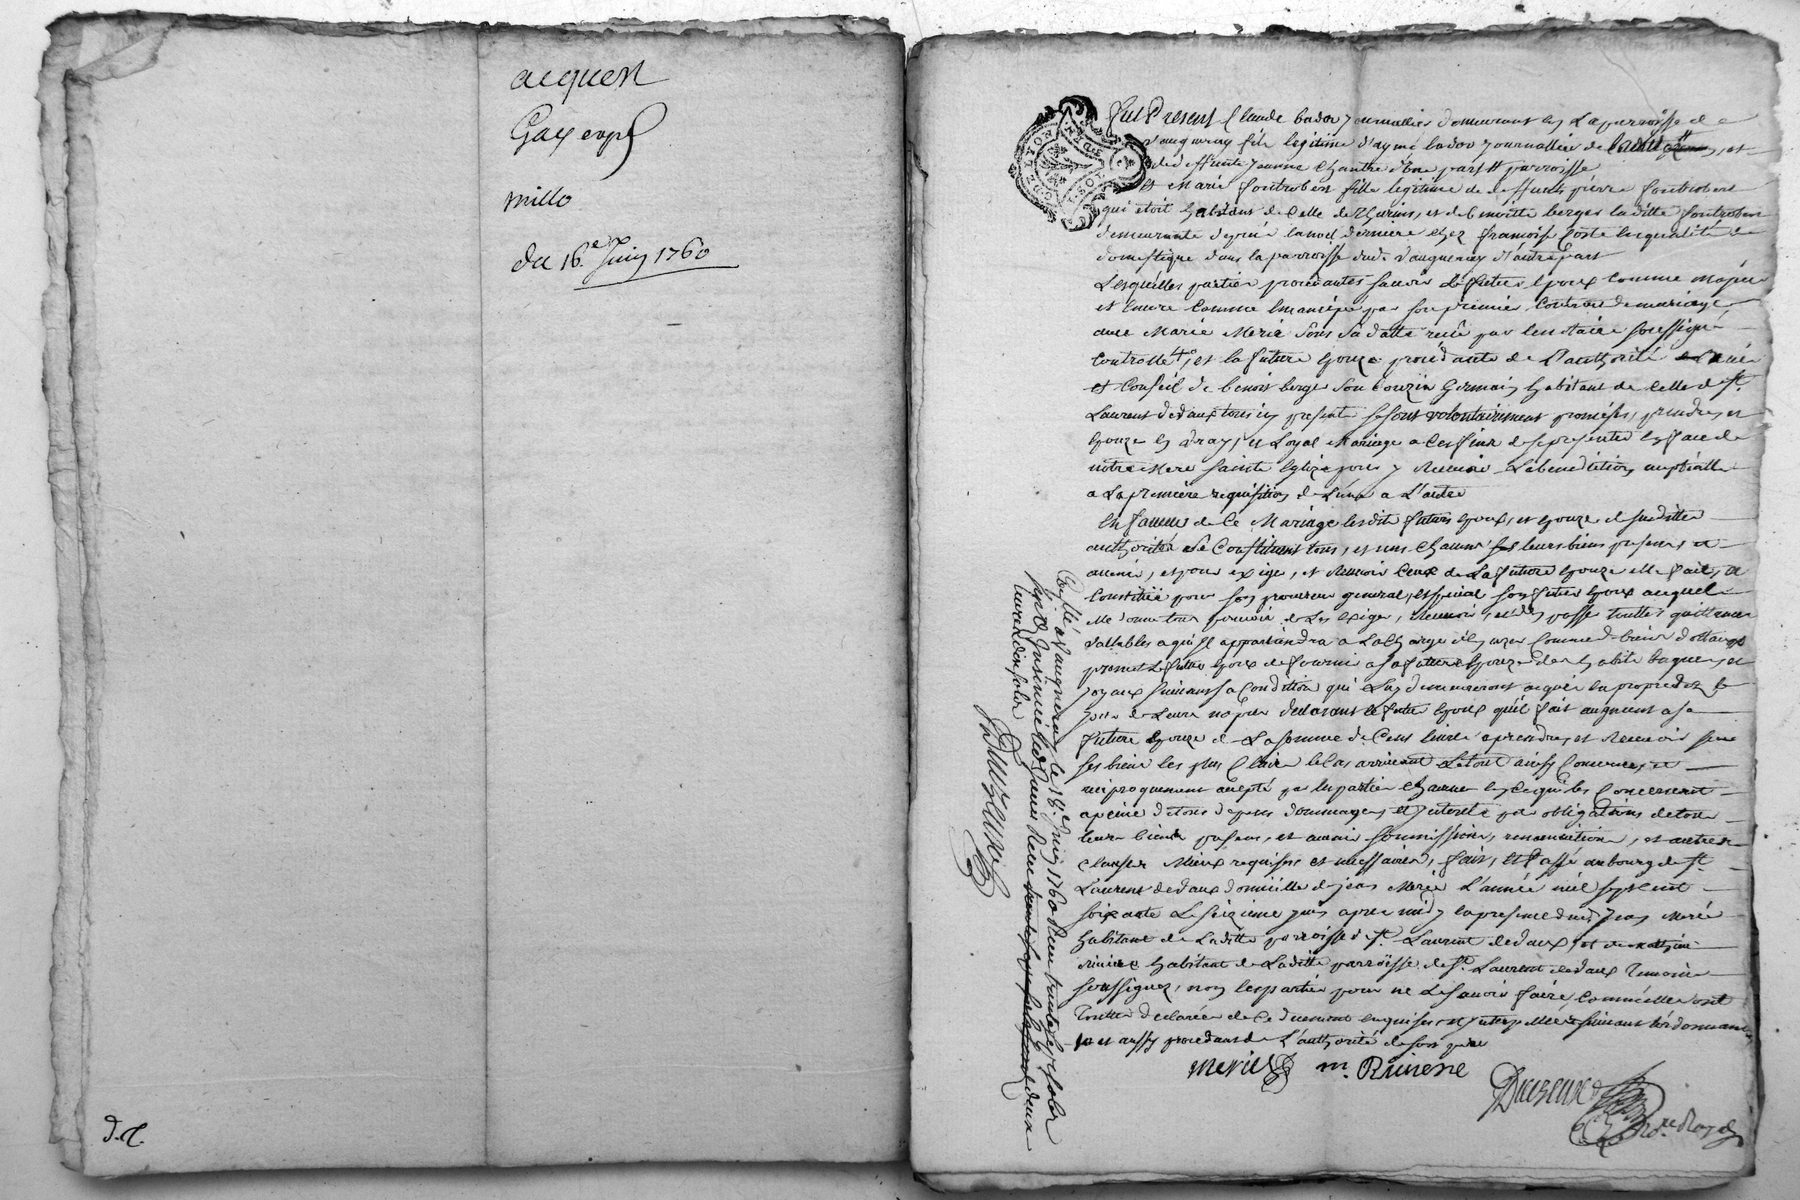 acquest
Gay
millo
du 16.e Juin 1760
d.R.
fut Present Claude bador journallier demeurant en La parroisse de
vaugneray fils legitime d'aymé bador journallier de et
de deffunte jeanne chantre d'une part parroisse
Et Marie fontrobert fille legitime de deffunt pierre fontrobert
qui etoit habitant de Celle de Thurins, et de benoitte berger laditte fontrobert
demeurante depuis la noel derniere chez françoise Coste en qualité de
domestique dans la parroisse dud. vaugneray d'autre part
Lesquelles parties procedantes savoir Le futur Epoux Comme majeur
et encore Comme Emancipé par son premier Contrat de mariage
avec Marie Merie sous sa datte receu par le notaire soussigné
Controllé, et la future Epouze procedante de L'authorité
et Conseil de benoist berger son Couzin Germain habitant de Celle de St.
Laurent de vaux tous icy present se sont volontairement promises, prendre, et
Epouzer en vray, et Loyal Mariage a Ces fins se presenter en face de
notre Mere Sainte Eglize pour y Recevoir La benediction nuptialle
a La premiere requisition de L'une a L'autre
En faveur de Ce Mariage lesdits futurs Epoux, et Epouze de susditte
authorité se Constituent tous, et uns Chacuns leurs biens presents et
avenir, et pour exiger, et Recevoir Ceux de La future Epouze elle fait, et
Constitue pour son procureur general, et special son futur Epoux auquel
elle donne tous pouvoir de Les Exiger, Recevoir, et d'en passer touttes quittances
vallables a qu'il appartiendra a La Charge d'en uzer Comme de biens dottaux
promet Le futur Epoux de fournir a sa future Epouze des habits bagues, et
joyaux suivant sa Condition qui Luy demeureront acquis en proprieté
de Leurs nopces declarant le futur Epoux qu'il fait augment a sa
future Epouze de La somme de Cent livres a prendre, et Recevoir sur
ses biens les plus Clairs le Cas arrivant Le tout ainsy Convenu, et
reciproquement accepté par les parties Chacune en Ce qui les Concernent
a peine de tous depens dommages, et interets par obligations de tous
leurs biens presens, et avenir soumissions, renonciation, et autres
Clauses Mieux requises et necessaires, fait, et Passé au bourg de St.
Laurent de vaux domicille de jean Merie L'année mil sept cent
soixante Le seizieme juin apres midy en presence dud. jean Merie
habitant de Laditte parroisse de St. Laurent de vaux, et de mathieu
Riviere habitant de Laditte parroisse de St. Laurent de vaux Temoins
soussignez, non les parties pour ne Le savoir faire Comme elles ont
touttes declarées de Ce duement enquises et interpellées suivant L'ordonnance
et aussy procedant de L'authorité de son pere
merie m. Riviere
Duzeune
Controllé a Vaugneray le 18.e Juin 1760 Reçu trente six sols
et Insinué led. jour Reçu deux
livres dix sols
Duzeune